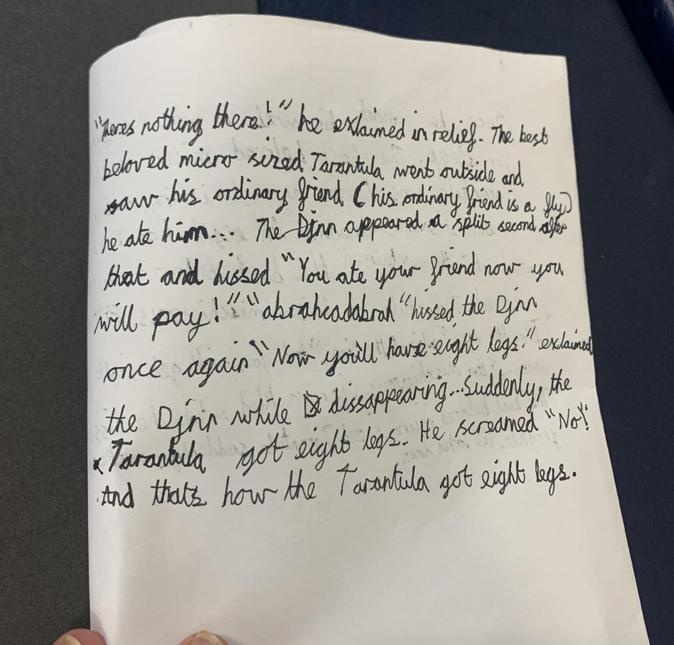 "heres nothing there!" he exlaimed in relief. The best
beloved micro sized Tarantula went outside and
saw his ordinary friend (his ordinary friend is a fly)
he ate him... The Djnn appeared a split second after
that and hissed "You ate your friend now you
will pay!" "abrahcadabrah" hissed the Djnn
once again "Now you'll have eight legs." exclaimed
the Djnn while dissappearing...Suddenly, the
Tarantula got eight legs. He screamed "No!"
And thats how the Tarantula got eight legs.